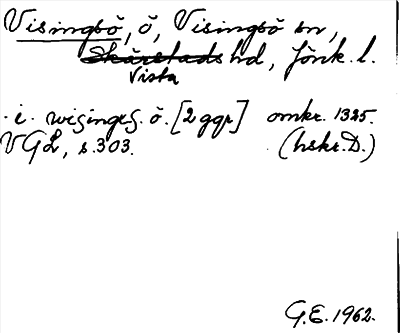 Visingsö, ö, Visingsö sn,
Skärstads hd, Jönk. l.
Vista
i. wisingxs. ö. [2 ggr] omkr. 1325.
VGL, s. 303. (hskr. D.)
G.E. 1962.